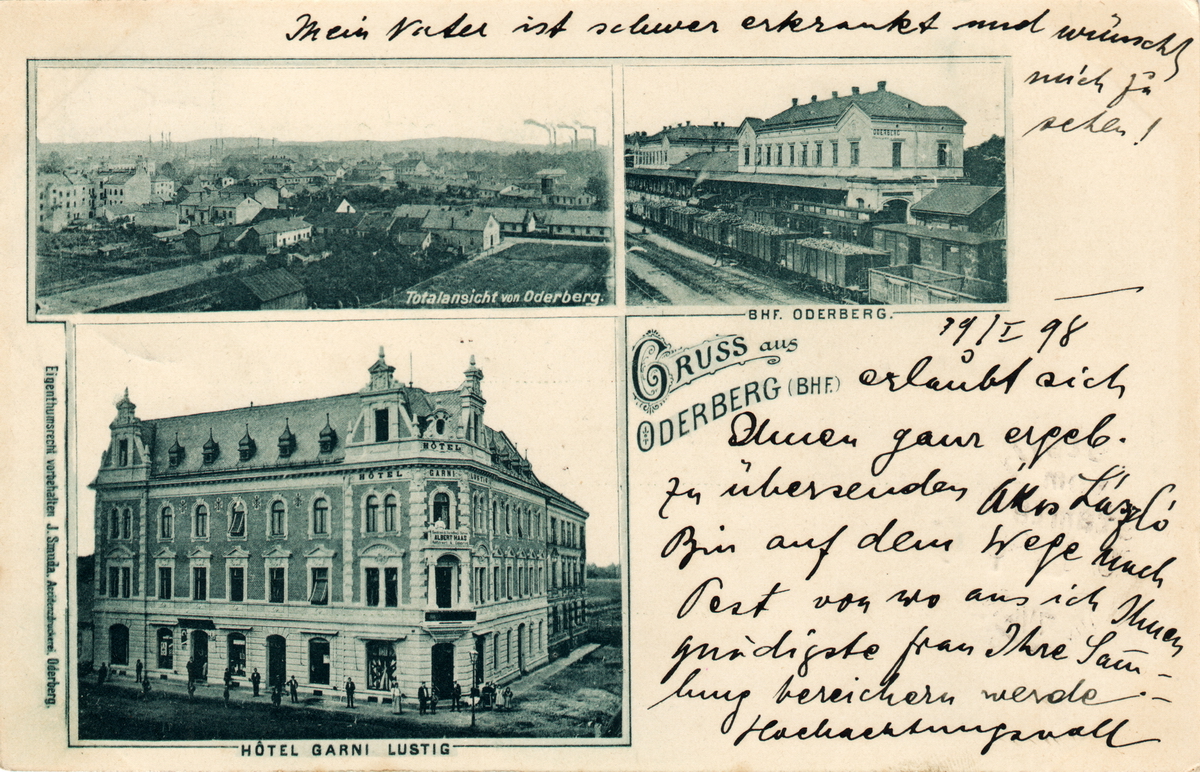 Mein Vater ist schwer erkrankt und wünscht
mich zu
sehen!
Totalansicht von Oderberg.
ODERBERG
BHF. ODERBERG.
GRUSS aus
ODERBERG (BHF.)
19/I 98
erlaubt sich
Ihnen ganz ergeb.
zu übersenden Ákos László
Bin auf dem Wege nach
Pest von wo aus ich Ihnen
gnädigste frau Ihre Samm-
lung bereichern werde
Hochachtungsvoll
HÔTEL
HÔTEL GARNI LUSTIG
ALBERT HAAS
HÔTEL GARNI LUSTIG
Eigenthumsrecht vorbehalten J. Smuda, Accidenzdruckerei Oderberg.